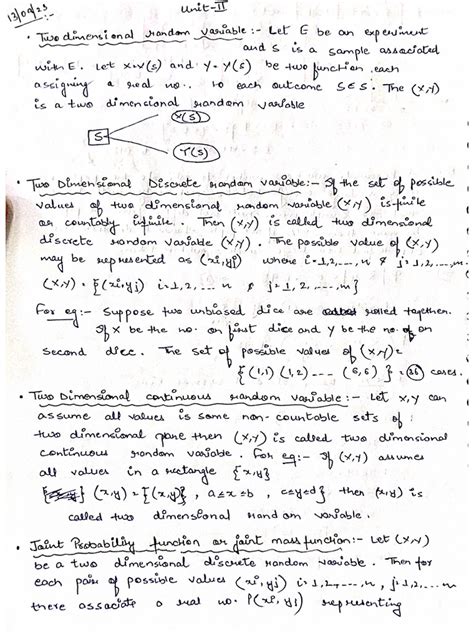 13/09/23
Unit-II
• Two dimensional random variable:- Let E be an experiment
and S is a sample associated
with E. Let X=X(s) and Y=Y(s) be two function each
assigning a real no. to each outcome S∈S. The (X,Y)
is a two dimensional random variable
X(S)
S
Y(S)
• Two Dimensional Discrete random variable:- If the set of possible
values of two dimensional random variable (X,Y) is finite
or countably infinite. Then (X,Y) is called two dimensional
discrete random variable (X,Y). The possible value of (X,Y)
may be represented as (xi,yj) where i=1,2,...,n & j=1,2,...,m
(X,Y) = {(xi,yj) i=1,2,... n & j=1,2,...,m}
For eg:- Suppose two unbiased dice are rolled together.
If X be the no. on first dice and Y be the no. of on
second dice. The set of possible values of (X,Y)=
{(1,1) (1,2) --- (6,6)} = 36 cases.
• Two Dimensional continuous random variable:- Let X,Y can
assume all values is some non-countable sets of
two dimensional then (X,Y) is called two dimensional
continuous random variable. For eg:- If (X,Y) assumes
all values in a rectangle {x,y}
(x,y) = {(x,y), a≤x≤b, c≤y≤d} then (x,y) is
called two dimensional random variable.
• Joint Probability function or joint mass function:- Let (X,Y)
be a two dimensional discrete random variable. Then for
each pair of possible values (xi,yj) i=1,2,---,n, j=1,2,...,m
there associate a real no. P(xi,yj) representing